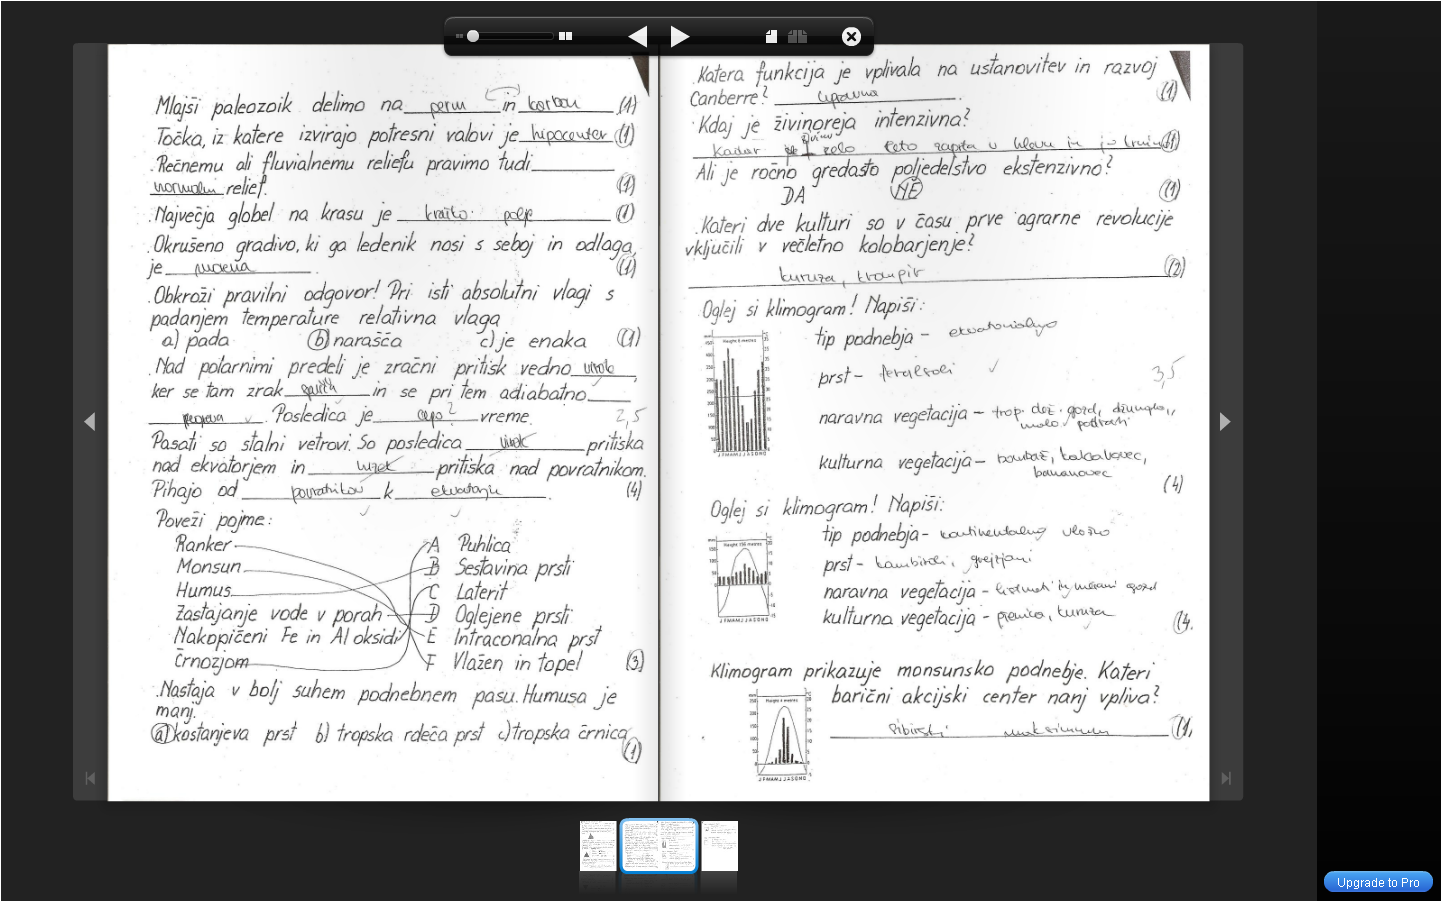 Mlajši paleozoik delimo na perm in karbon (1)
Točka, iz katere izvirajo potresni valovi je hipocenter (1)
Rečnemu ali fluvialnemu reliefu pravimo tudi
normalni relief. (1)
Največja globel na krasu je kraško polje (1)
Okrušeno gradivo, ki ga ledenik nosi s seboj in odlaga,
je morena. (1)
Obkroži pravilni odgovor! Pri isti absolutni vlagi s
padanjem temperature relativna vlaga
a) pada b) narašča c) je enaka (1)
Nad polarnimi predeli je zračni pritisk vedno visok,
ker se tam zrak in se pri tem adiabatno
. Posledica je lepo? vreme. 2,5
Pasati so stalni vetrovi. So posledica visok pritiska
nad ekvatorjem in nizek pritiska nad povratnikom.
Pihajo od povratnikov k ekvatorju. (4)
Poveži pojme:
Ranker A Puhlica
Monsun B Sestavina prsti
Humus C Laterit
Zastajanje vode v porah D Oglejene prsti
Nakopičeni Fe in Al oksidi E Intraconalna prst
Črnozjom F Vlažen in topel (3)
Nastaja v bolj suhem podnebnem pasu. Humusa je
manj.
a) kostanjeva prst b) tropska rdeča prst c) tropska črnica
(1)
Katera funkcija je vplivala na ustanovitev in razvoj
Canberre? upravna. (1)
Kdaj je živinoreja intenzivna?
Kadar živino celo leto zapita v hlevu in jo (1)
Ali je ročno gredasto poljedelstvo ekstenzivno?
DA NE (1)
Kateri dve kulturi so v času prve agrarne revolucije
vključili v večletno kolobarjenje?
kuruza, krompir (2)
Oglej si klimogram! Napiši:
tip podnebja - ekvatorialno
prst - feralsoli 3,5
naravna vegetacija - trop. dež. gozd, džungla,
malo podrasti
kulturna vegetacija - bombaž, kakavovec,
bananovec
(4)
Height 5 metres
J F M A M J J A S O N D
Oglej si klimogram! Napiši:
tip podnebja - kontinentalno vlažno
prst - kambisoli,
naravna vegetacija - listnati in mešani gozd
kulturna vegetacija - pšenica, kuruza (4.
Height 156 metres
J F M A M J J A S O N D
Klimogram prikazuje monsunsko podnebje. Kateri
barični akcijski center nanj vpliva?
sibirski maksimum (1,
J F M A M J J A S O N D
Upgrade to Pro